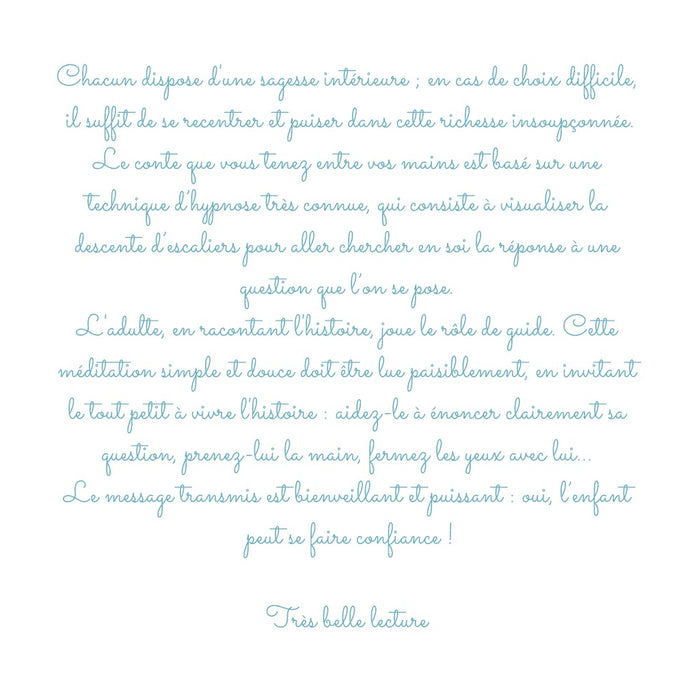 Chacun dispose d'une sagesse intérieure ; en cas de choix difficile,
il suffit de se recentrer et puiser dans cette richesse insoupçonnée.
Le conte que vous tenez entre vos mains est basé sur une
technique d'hypnose très connue, qui consiste à visualiser la
descente d'escaliers pour aller chercher en soi la réponse à une
question que l'on se pose.
L'adulte, en racontant l'histoire, joue le rôle de guide. Cette
méditation simple et douce doit être lue paisiblement, en invitant
le tout petit à vivre l'histoire : aidez-le à énoncer clairement sa
question, prenez-lui la main, fermez les yeux avec lui...
Le message transmis est bienveillant et puissant : oui, l'enfant
peut se faire confiance !
Très belle lecture